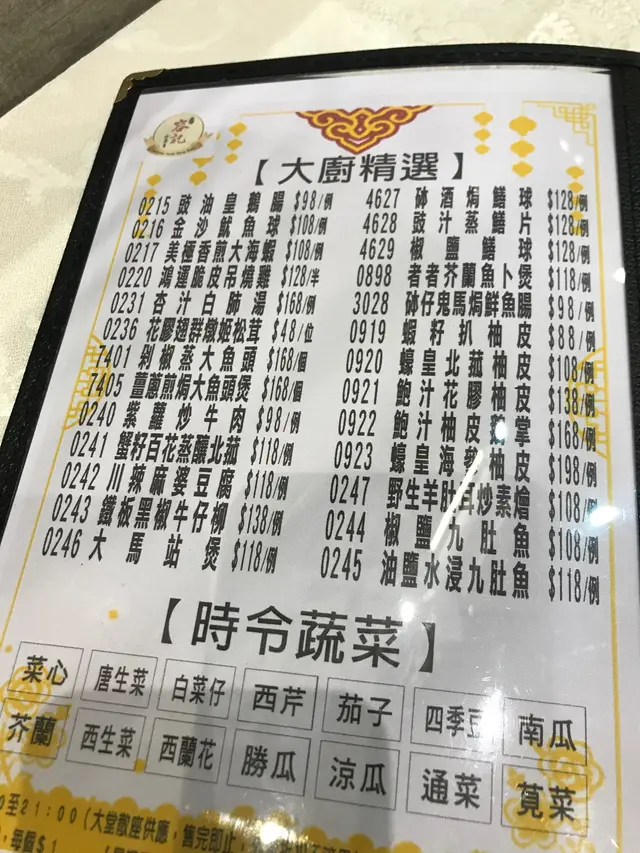 容記
【大廚精選】
0215 豉油皇鵝腸 $98/例
0216 金沙魷魚球 $108/例
0217 美極香煎大海蝦 $108/例
0220 鴻運脆皮吊燒雞 $128/半
0231 杏汁白肺湯 $168/例
0236 花膠翅群燉姬松茸 $48/位
7401 剁椒蒸大魚頭 $168/個
7405 薑蔥煎焗大魚頭煲 $168/個
0240 紫蘿炒牛肉 $98/例
0241 蟹籽百花蒸釀北菰 $118/例
0242 川辣麻婆豆腐 $118/例
0243 鐵板黑椒牛仔柳 $138/例
0246 大馬站煲 $118/例
4627 砵酒焗鱔球 $128/例
4628 豉汁蒸鱔片 $128/例
4629 椒鹽鱔球 $128/例
0898 者者芥蘭魚卜煲 $118/例
3028 砵仔鬼馬焗鮮魚腸 $98/例
0919 蝦籽扒柚皮 $88/例
0920 蠔皇北菰柚皮 $108/例
0921 鮑汁花膠柚皮 $138/例
0922 鮑汁柚皮鵝掌 $168/例
0923 蠔皇海參柚皮 $198/例
0247 野生羊肚耳炒素燴 $108/例
0244 椒鹽九肚魚 $108/例
0245 油鹽水浸九肚魚 $118/例
【時令蔬菜】
菜心 唐生菜 白菜仔 西芹 茄子 四季豆 南瓜
芥蘭 西生菜 西蘭花 勝瓜 涼瓜 通菜 莧菜
至21:00(大堂散座供應，售完即止
每個$1